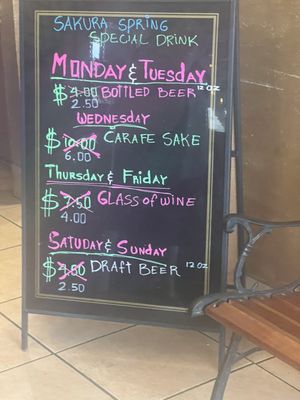 SAKURA SPRING
SPECIAL DRINK
MONDAY & TUESDAY
$ 4.00 BOTTLED BEER 12 OZ
2.50
WEDNESDAY
$ 10.00 CARAFE SAKE
6.00
THURSDAY & FRIDAY
$ 7.50 GLASS OF WINE
4.00
SATUDAY & SUNDAY
$ 3.50 DRAFT BEER 12 OZ
2.50